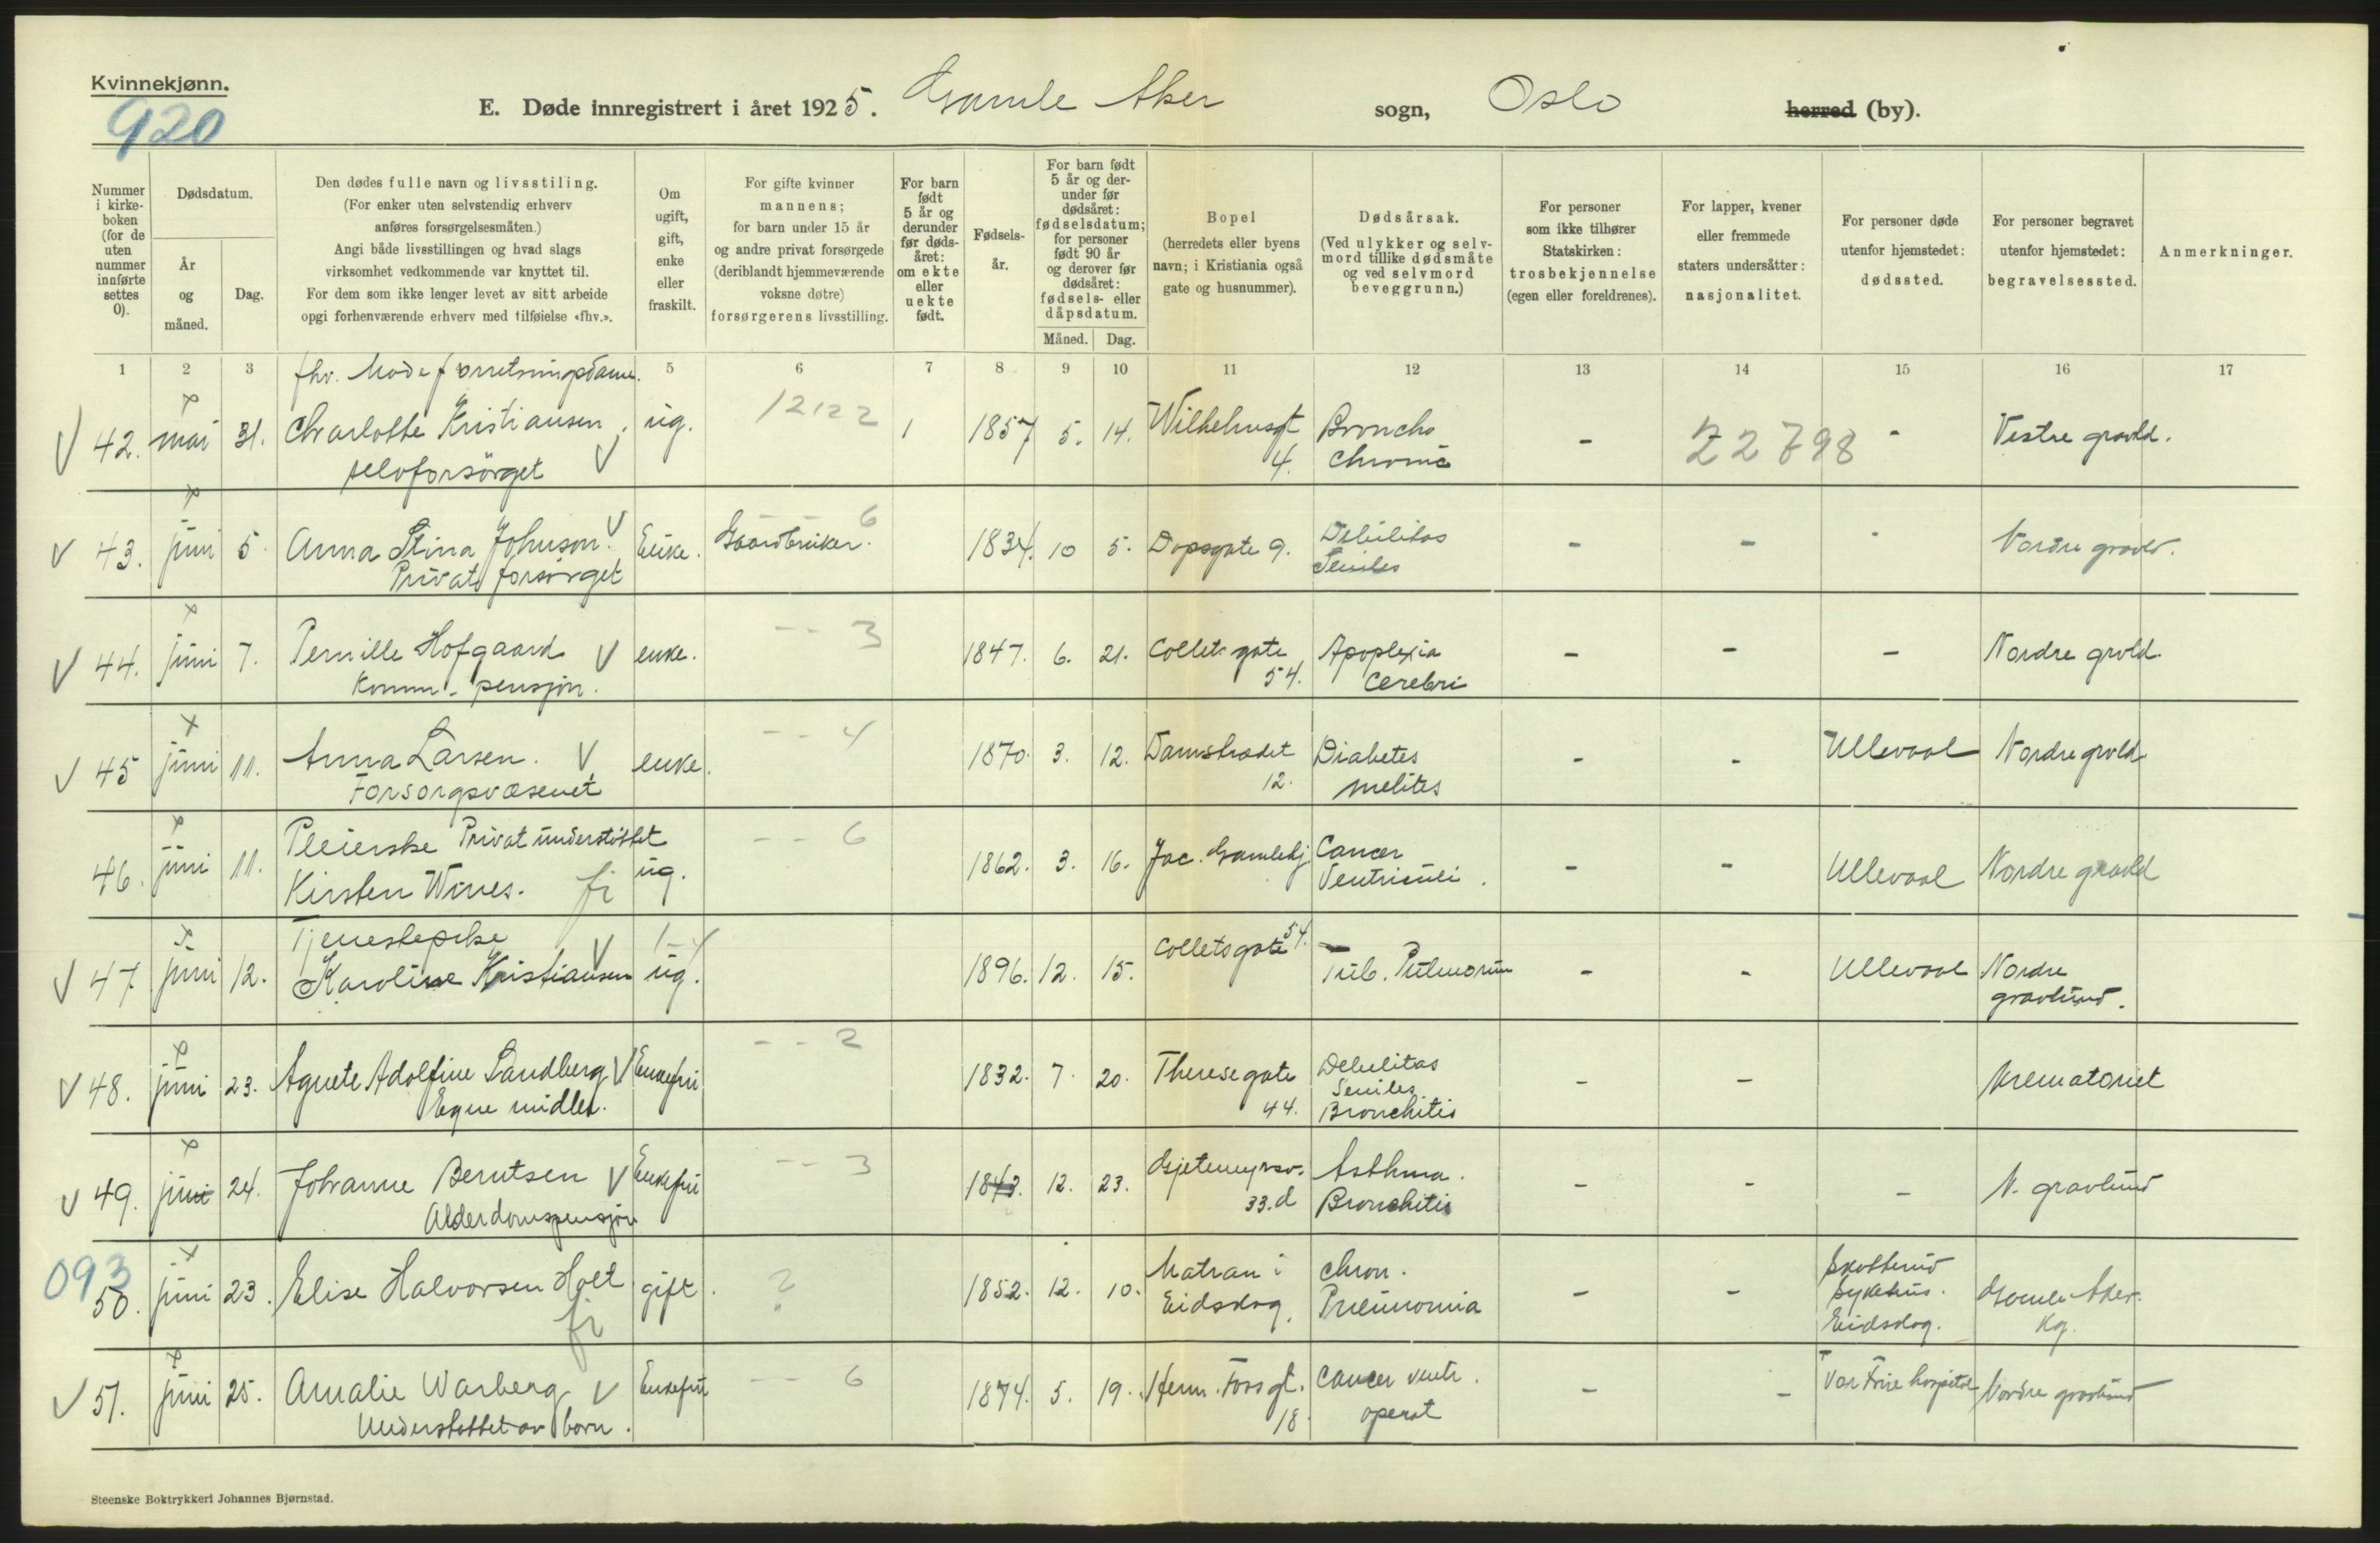 Kvinnekjønn.
920
E. Døde innregistrert i året 1925. Gamle Aker sogn, Oslo herred (by).
Nummer i kirke-boken (for de uten nummer innførte settes 0).
Dødsdatum.
År og måned.
Dag.
Den dødes fulle navn og livsstiling.
(For enker uten selvstendig erhverv
anføres forsørgelsesmåten.)
Angi både livsstillingen og hvad slags
virksomhet vedkommende var knyttet til.
For dem som ikke lenger levet av sitt arbeide
opgi forhenværende erhverv med tilføielse «fhv.».
Om ugift, gift, enke eller fraskilt.
For gifte kvinner
mannens;
for barn under 15 år
og andre privat forsørgede
(deriblandt hjemmeværende
voksne døtre)
forsørgerens livsstilling.
For barn født 5 år og derunder før døds-året: om ekte eller uekte født.
Fødsels-år.
For barn født 5 år og der-under før dødsåret: fødselsdatum; for personer født 90 år og derover før dødsåret: fødsels- eller dåpsdatum.
Måned. Dag.
Bopel
(herredets eller byens
navn; i Kristiania også
gate og husnummer).
Dødsårsak.
(Ved ulykker og selv-
mord tillike dødsmåte
og ved selvmord
beveggrunn.)
For personer
som ikke tilhører
Statskirken:
trosbekjennelse
(egen eller foreldrenes).
For lapper, kvener
eller fremmede
staters undersåtter:
nasjonalitet.
For personer døde
utenfor hjemstedet:
dødssted.
For personer begravet
utenfor hjemstedet:
begravelsessted.
Anmerkninger.
1 2 3 5 6 7 8 9 10 11 12 13 14 15 16 17
fhv. Modeforretningsdame.
V 42. mai 31. Charlotte Kristiansen. ug. 12122 1 1857 5. 14. Wilhelmsgt 4. Broncho chronic - 22798 - Vestre gravld.
selvforsörget V
V 43. juni 5. Anna Stina Johnson. V Enke. Gaardbruker. 6 1834. 10 5. Dopsgate 9. Debilitas Seniles - - - Nordre gravld.
Privat forsörget
V 44. juni 7. Pernille Hofgaard V enke. -- 3 1847. 6. 21. Collets gate 54. Apoplexia Cerebri - - - Nordre grvld.
Komm. pensjon.
V 45 juni 11. Anna Larsen. V enke. -- 4 1870. 3. 12. Damstrædet 12. Diabetes melites - - Ullevaal Nordre grvld
Forsorgsvæsenet
Pleierske Privat understöttet
46. juni 11. Kirsten Wines. fi ug. -- 6 1862. 3. 16. Jac. Hj Cancer Ventriculi. - - Ullevaal Nordre gravld
Tjenestepike
V 47. juni 12. Karoline Kristiansen V ug. 1-4 1896. 12. 15. Colletsgate 54. Tub. Pulmonum - - Ullevaal Nordre gravlund.
V 48. juni 23. Agnete Adolfine Sandberg V Enkefru -- 2 1832. 7. 20. Therese gate 44. Debilitas Seniles Bronchitis - - Krematoriet
Egne midler.
V 49. juni 24. Johanne Berntsen V Enkefru -- 3 1843. 12. 23. Gjetemyrsv. 33.d Asthma. Bronchitis - - - N. gravlund
Alderdomspensjon
093
50. juni 23. Elise Halvorsen Holt fi gift. ? 1852. 12. 10. Matran i Eidskog. chron. Pneumonia - - Skotterud Sykehus. Eidskog. Gamle Aker. Kg.
V 51. juni 25. Amalie Warberg V Enkefru -- 6 1874. 5. 19. Herm. Foss gt. 18. Cancer ventr. operat - - Vor Frue hospital Nordre gravlund
Understøttet av børn.
Steenske Boktrykkeri Johannes Bjørnstad.